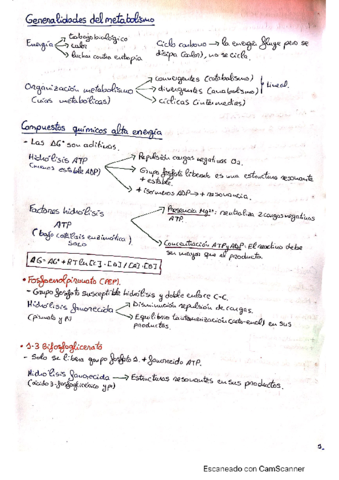 Generalidades del metabolismo
Energía
trabajo biológico
calor
luchar contra entropía
Ciclo carbono → la energía fluye pero se
disipa (calor), no se cicla.
Organización metabolismo
(vías metabólicas)
convergentes (catabolismo)
divergentes (anabolismo)
cíclicas (intermedios)
lineal.
Compuestos químicos alta energía
- Las ΔG° son aditivas.
Hidrólisis ATP
(menos estable ADP)
Repulsión cargas negativas O2.
Grupo fosfato liberado es una estructura resonante
+ estable.
+ isómeros ADP → + resonancia.
Factores hidrólisis
ATP
(bajo catálisis enzimática)
Presencia Mg2+: neutraliza 2 cargas negativas
ATP.
Concentración ATP y ADP. El reactivo debe
ser mayor que el producto
ΔG = ΔG° + RT ln [C]·[D] / [A]·[B]
• Fosfoenolpiruvato (PEP).
- Grupo fosfato susceptible hidrólisis y doble enlace C-C.
Hidrólisis favorecida
(piruvato y Pi)
Disminución repulsión de cargas.
Equilibrio tautomerización (ceto-enol) en sus
productos.
• 1-3 Bifosfoglicerato
- Solo se libera grupo fosfato 1. + favorecido ATP.
Hidrólisis favorecida → Estructuras resonantes en sus productos.
(ácido 3-fosfoglicérico y Pi)
1.
Escaneado con CamScanner